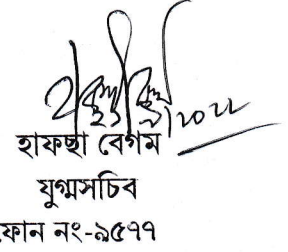 হাফছা বেগম
যুগ্মসচিব
ফোন নং-৯৫৭৭